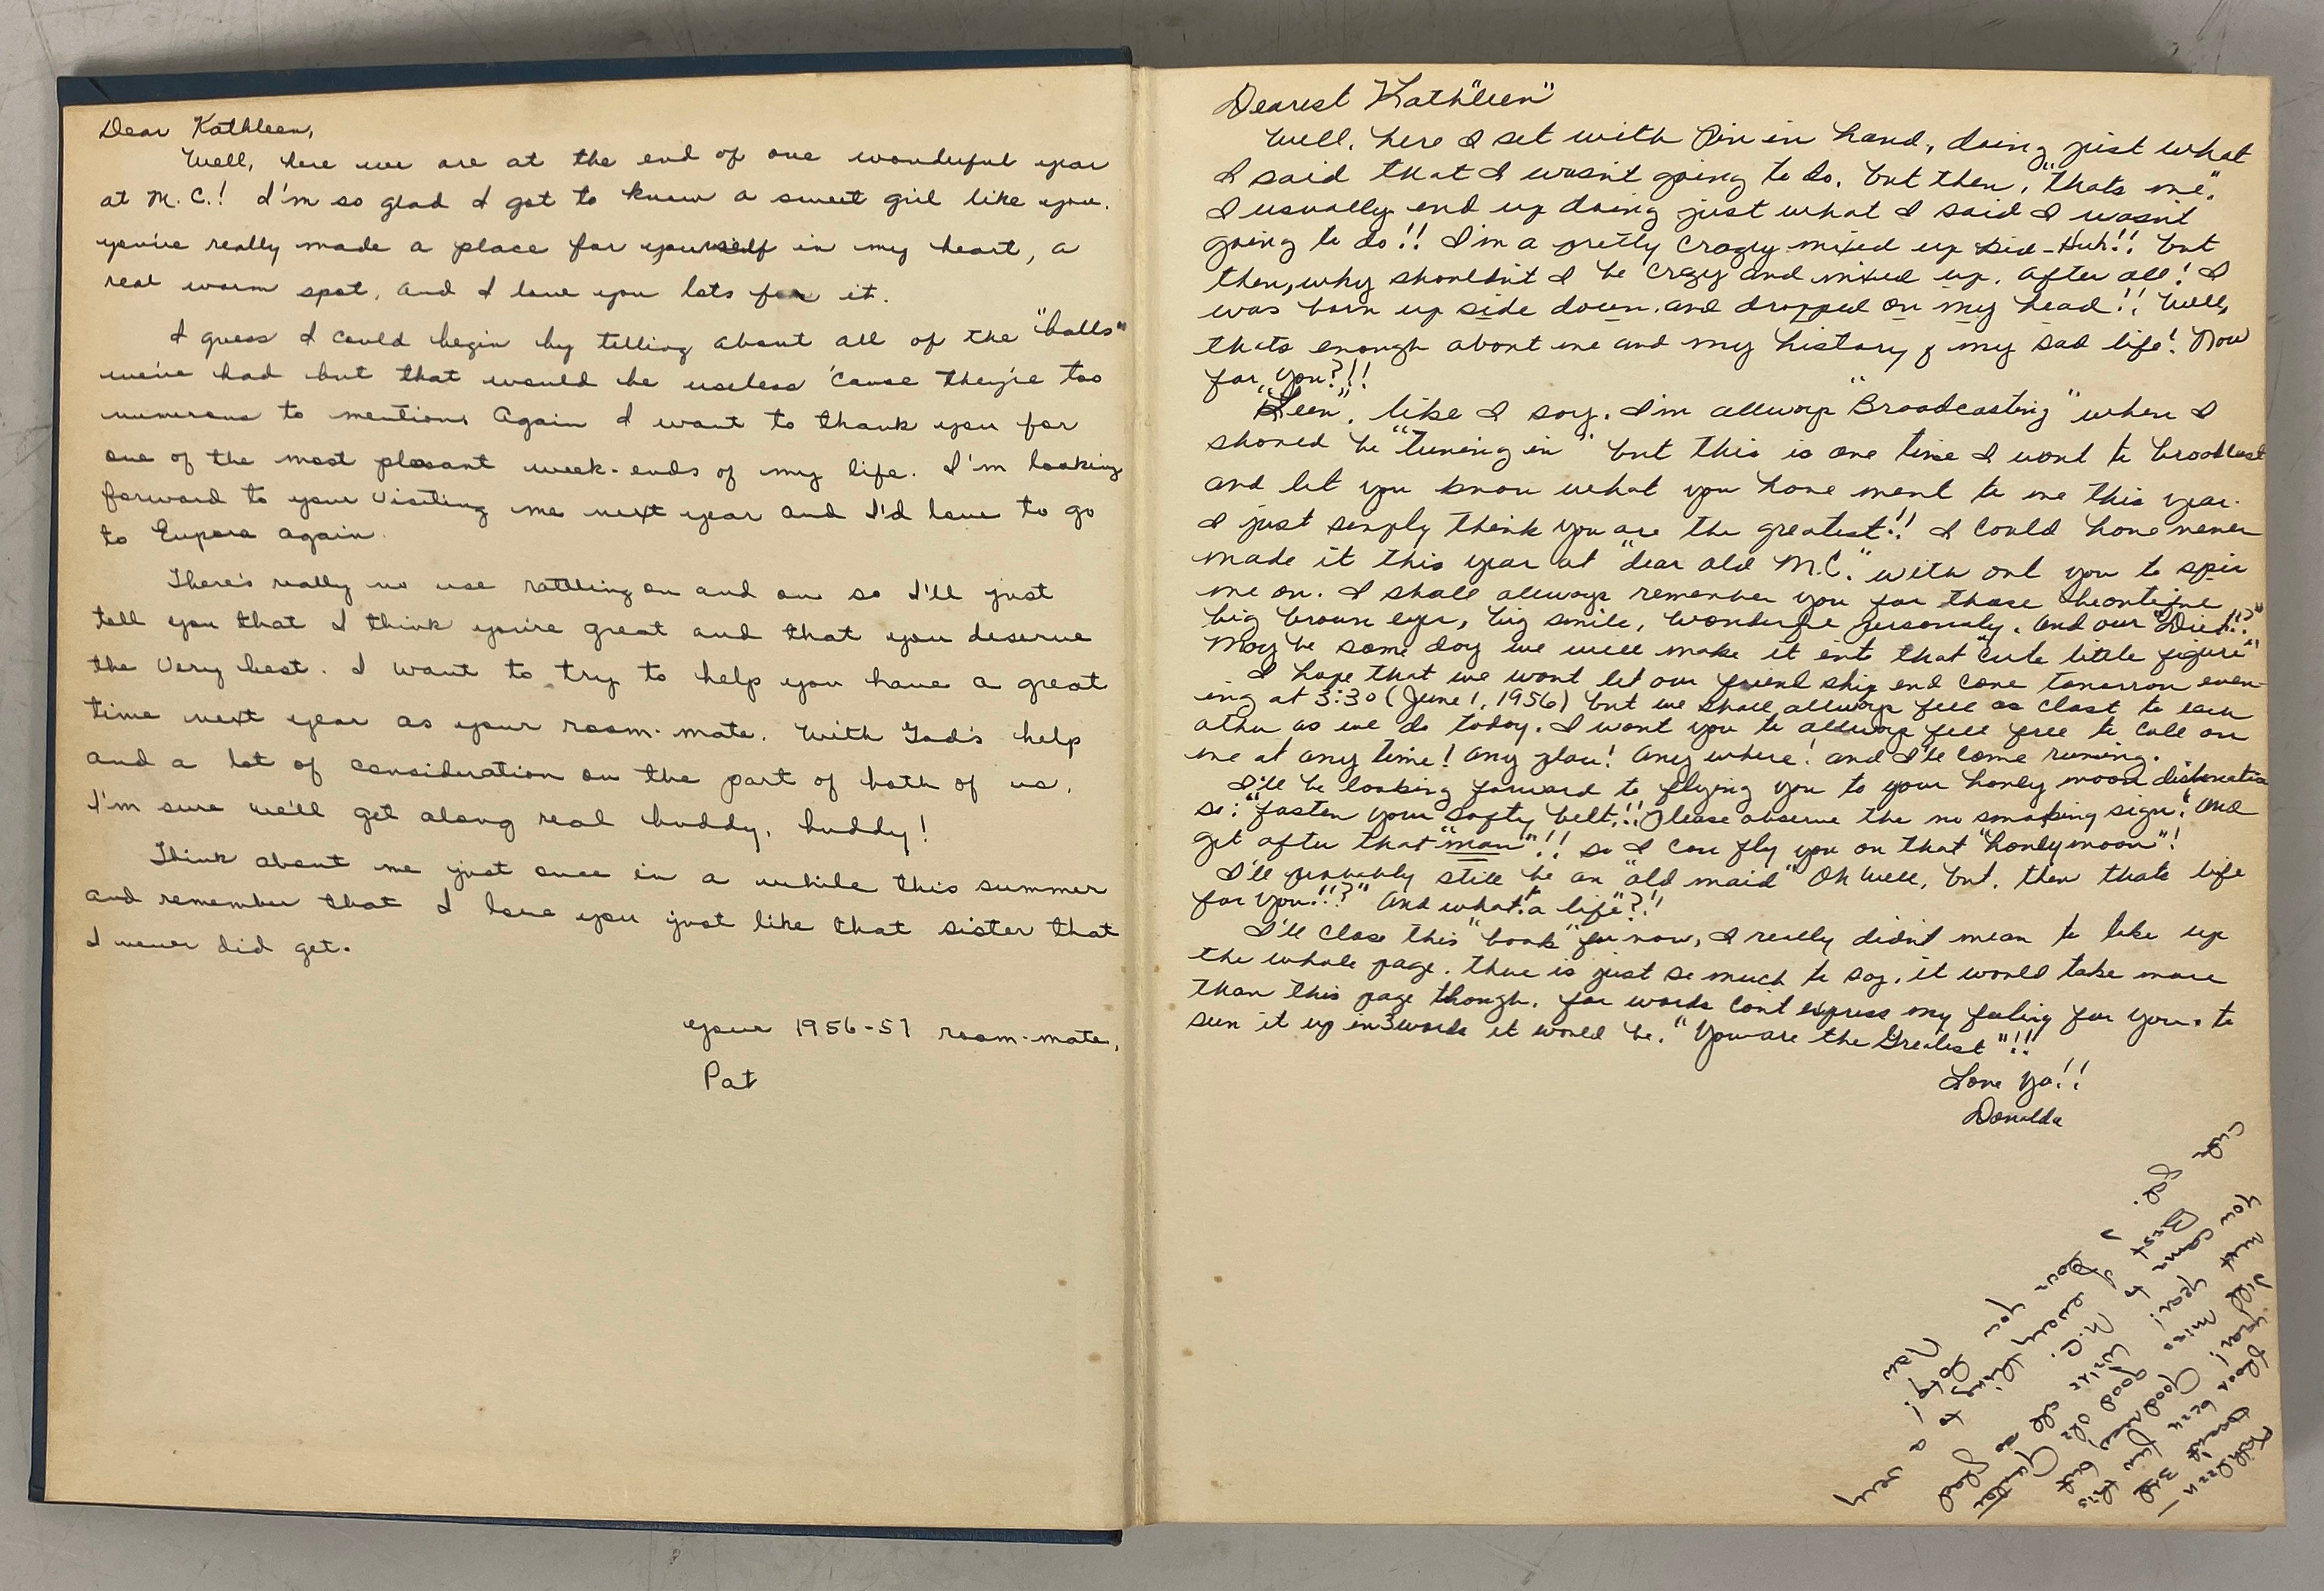 Dear Kathleen,
Well, here we are at the end of one wonderful year
at M.C.! I'm so glad I got to know a sweet girl like you.
you've really made a place for yourself in my heart, a
real warm spot, and I love you lots for it.
I guess I could begin by telling about all of the "balls"
we've had but that would be useless 'cause they're too
numerous to mention. Again I want to thank you for
one of the most pleasant week-ends of my life. I'm looking
forward to your visiting me next year and I'd love to go
to Eupora again.
There's really no use rattling on and on so I'll just
tell you that I think you're great and that you deserve
the very best. I want to try to help you have a great
time next year as your room-mate. With God's help
and a lot of consideration on the part of both of us,
I'm sure we'll get along real buddy, buddy!
Think about me just once in a while this summer
and remember that I love you just like that sister that
I never did get.
your 1956-57 room-mate,
Pat
Dearest Kath"leen"
Well, here I set with Pin in hand, doing just what
I said that I wasn't going to do, but then, "thats me".
I usually end up doing just what I said I wasn't
going to do!! I'm a pretty crazy mixed up kid-Huh!! but
then, why shouldn't I be crazy and mixed up. after all! I
was born up side down and dropped on my head!! Well,
thats enough about me and my history & my sad life! Now
for you?!!
"Leen", like I say. I'm allways "Broadcasting" when I
shoued be "tuning in" but this is one time I want to broadcast
and let you know what you have ment to me this year.
I just simply think you are the greatest!! I could have never
made it this year at "dear old M.C." with out you to spir
me on. I shall allways remember you for those
big brown eyes, big smile, wonderful personaly. and our "Diet!!?"
May be some day we will make it int that "cute little figure"
I hope that we wont let our friend ship end come tomorrow even-
ing at 3:30 (June 1, 1956) but we shall allways feel as clost to each
other as we do today. I want you to allways feel free to call on
me at any time! any place! any where! and I'll come runing.
I'll be looking forward to flying you to your honley moon
so: "fasten your safty belt,!! Please observe the no smoking sign! and
get after that "man"!! so I can fly you on that "honley moon"!
I'll probably still be an "old maid" Oh well, but, then thats life
for you!!?" And what "a life"?!
I'll close this "book" for now, I really didn't mean to take up
the whole page. there is just so much to say, it would take more
than this page though, for words can't express my feeling for you. to
sum it up in 3 words it would be. "You are the Greatest"!!
Love Ya!!
Donalda
Kathleen—
3rd
floor been fun this
year! Good
I'll miss good ole
next year! write
You come to M.C. all so glad
Best everything to a very
cute gal.
Love you lots!